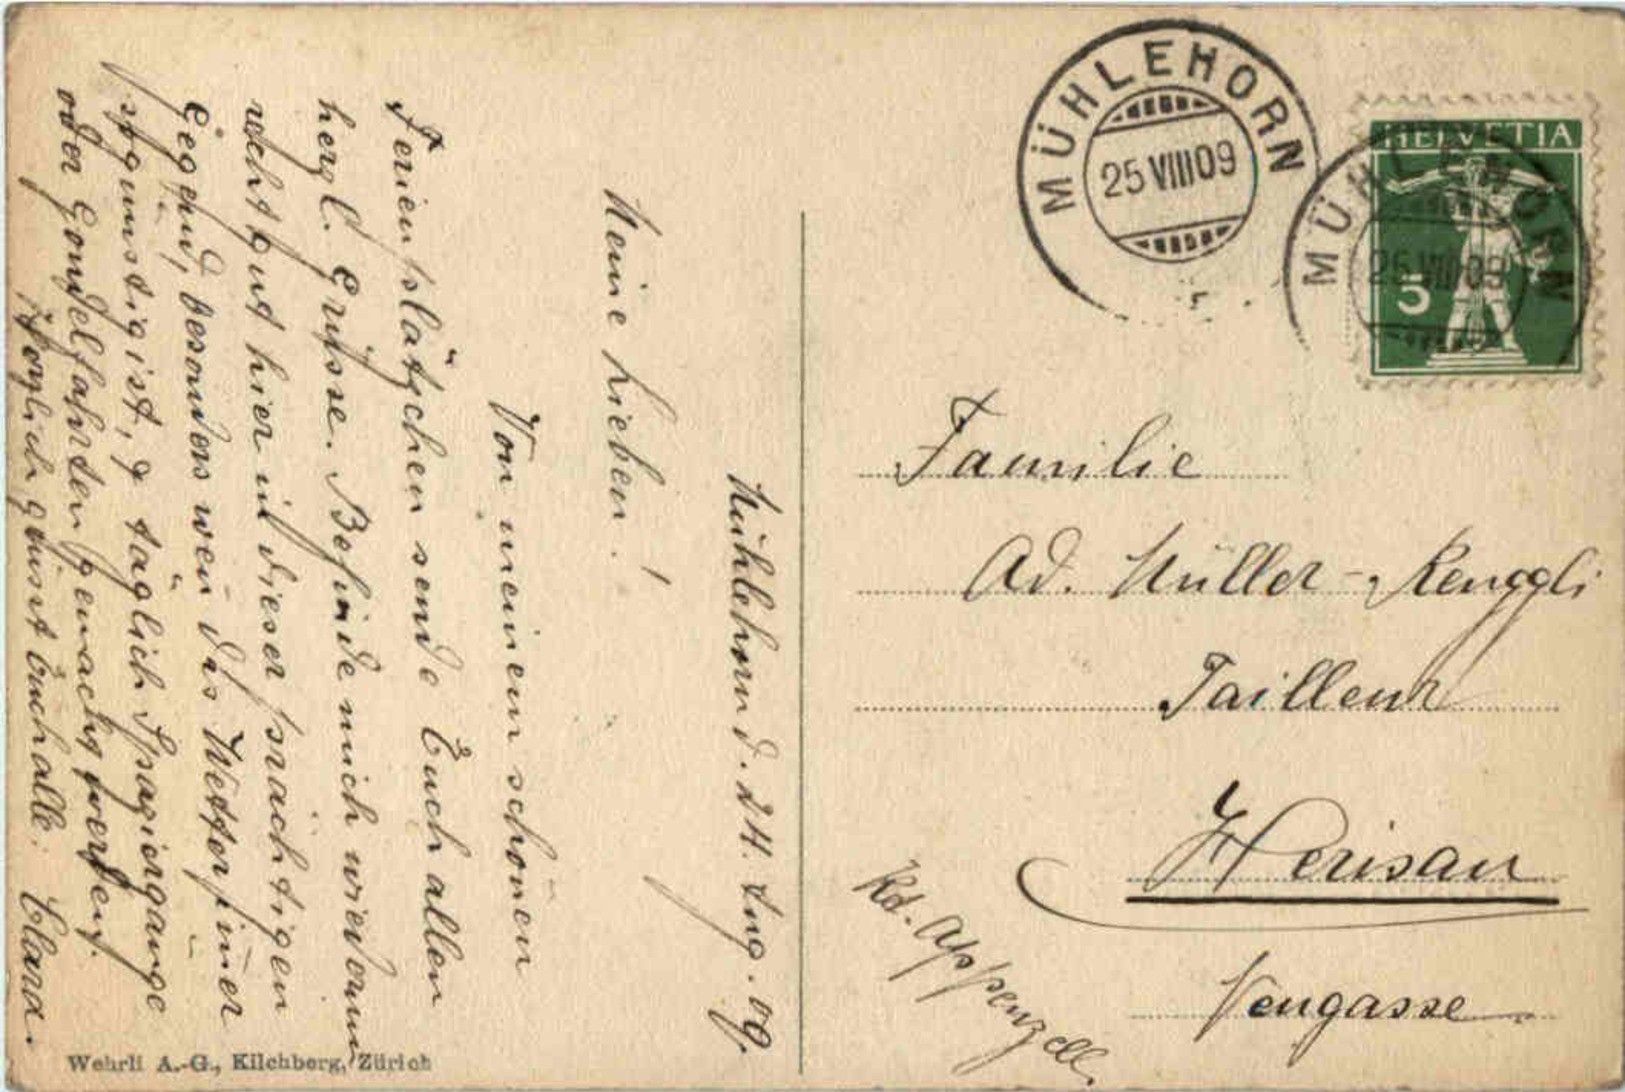 MÜHLEHORN
25 VIII 09
HELVETIA
5
MÜHLEHORN
25 VIII 09
Mühlehorn d. 24. Aug. 09.
Meine Lieben!
Von meinem schönen
Ferienplätzchen sende Euch allen
herzl. Grüsse. Befinde mich wiederum
recht gut hier in dieser prächtigen
Gegend, besonders wen̄ das Wetter im̄er
günstig ist, & täglich Spaziergänge
oder Gondelfahrten gemacht werden.
Herzlich grüsst Euch alle. Clara.
Familie
Ad. Müller-Renggli
Tailleur
Herisau
Neugasse
Kt. Appenzell.
Wehrli A.-G., Kilchberg, Zürich